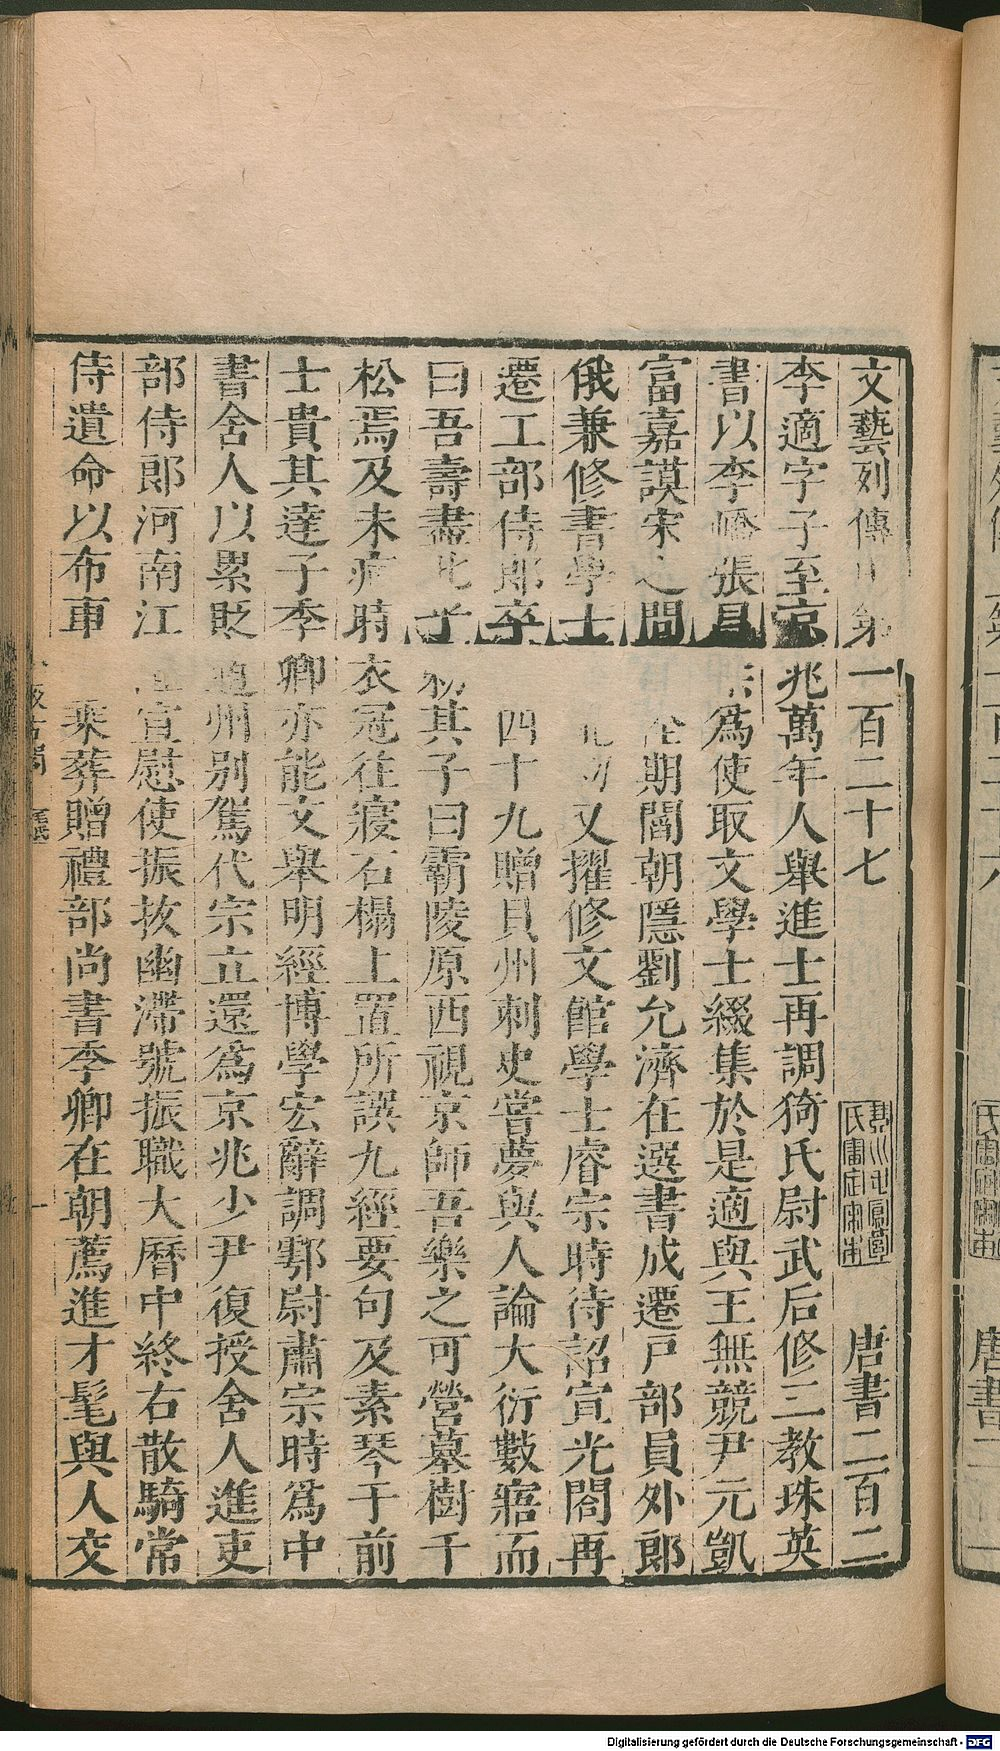 文藝列傳 第一百二十七 唐書二百二
李適字子至京兆萬年人舉進士再調猗氏尉武后修三教珠英
書以李嶠張昌 爲使取文學士綴集於是適與王無競尹元凱
富嘉謨宋之問 期閻朝隱劉允濟在選書成遷戶部員外郎
俄兼修書學士 又擢修文館學士睿宗時待詔宣光閤再
遷工部侍郎卒 四十九贈貝州刺史嘗夢與人論大衍數寤而
曰吾壽盡此乎 其子曰霸陵原西視京師吾樂之可營墓樹千
松焉及未病時衣冠往寢石榻上置所譔九經要句及素琴于前
士貴其達子季卿亦能文舉明經博學宏辭調鄠尉肅宗時爲中
書舍人以累貶 州別駕代宗立還爲京兆少尹復授舍人進吏
部侍郎河南江 宣慰使振拔幽滯號振職大曆中終右散騎常
侍遺命以布車 乘葬贈禮部尚書季卿在朝薦進才髦與人交